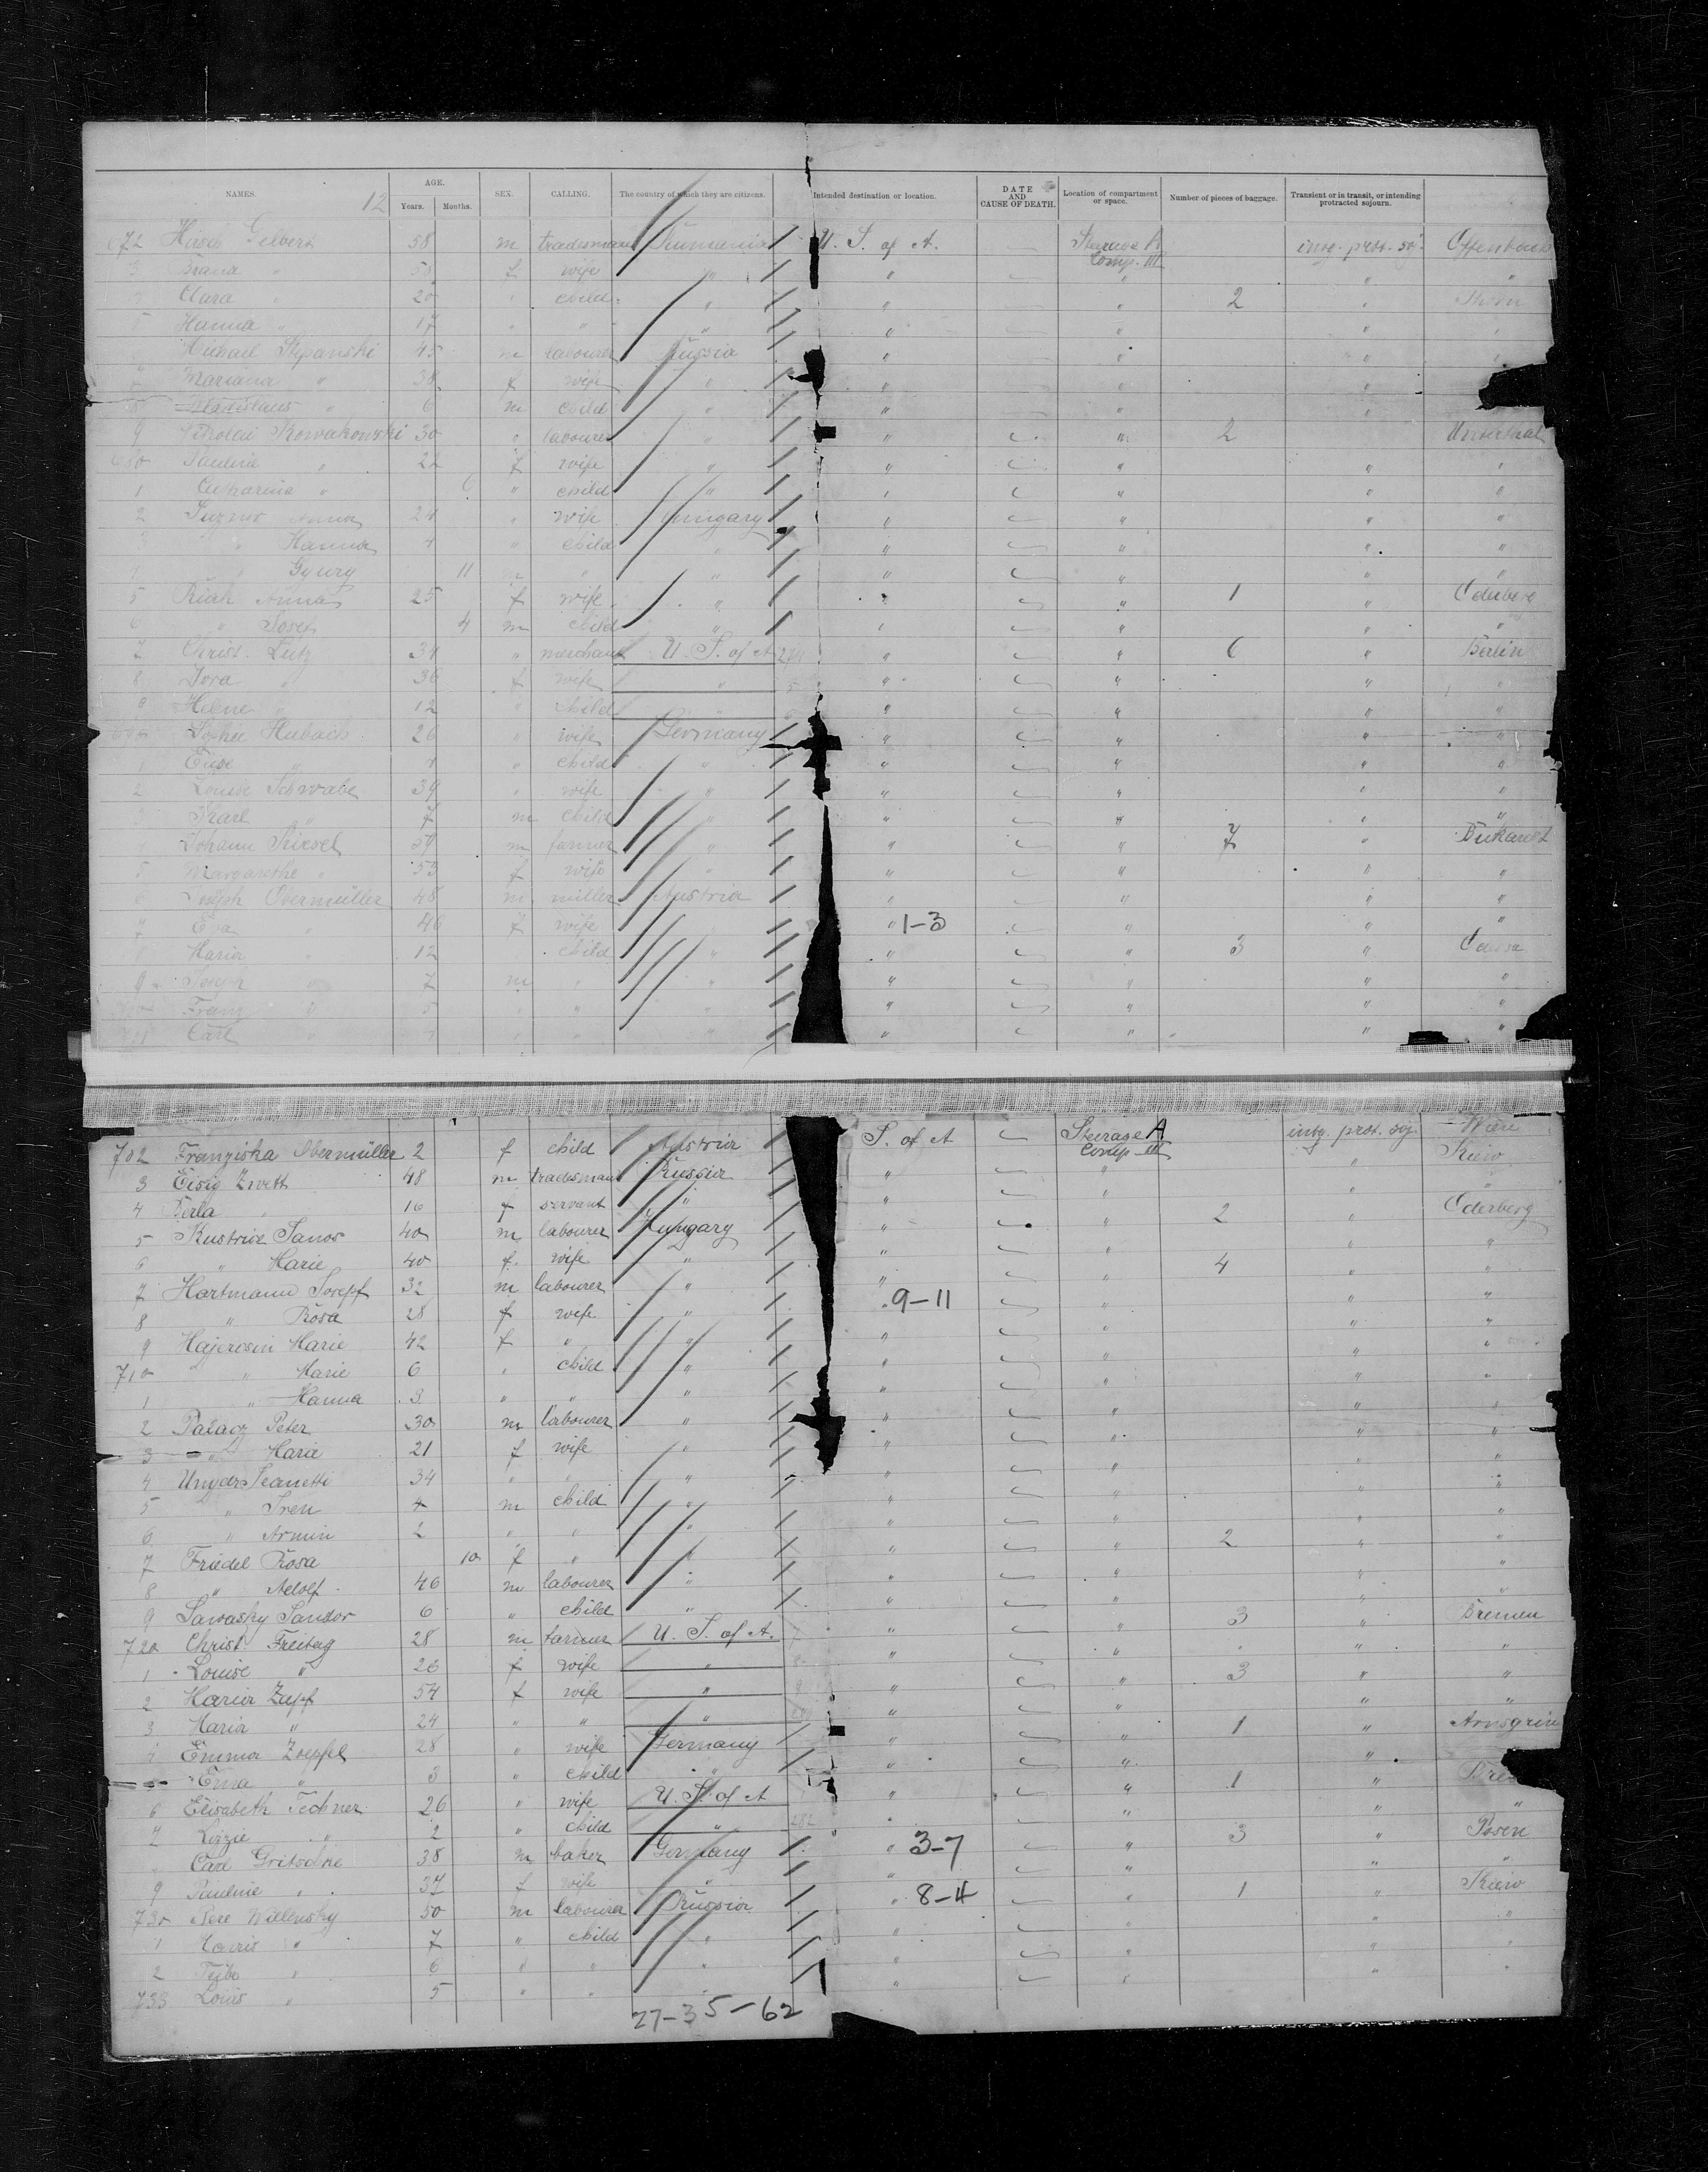 NAMES. 12 AGE. Years. Months. SEX. CALLING. The country of which they are citizens. Intended destination or location. DATE AND CAUSE OF DEATH. Location of compartment or space. Number of pieces of baggage. Transient or in transit, or intending protracted sojourn.
672 Hirsch Gelbert 58 m tradesman Rumania U. S. of A. Steerage A Comp. III intg. prot. soj. Offenbach
3 Brana " 50 f wife " " " " "
4 Clara " 20 " child " " " 2 " Thorn
5 Hanna " 17 " " " " " " "
Michael Stepanski 45 m labourer Russia " " " "
7 Mariana " 38 f wife " " " "
8 Wladislaus " 6 m child " " " "
9 Nikolai Kowakowski 30 " labourer " " " 2
680 Paulina " 22 f wife " " " " "
1 Catharina " 6 " child " " " " "
2 Anna 24 " wife Hungary " " " "
3 " Hanna 4 " child " " " " "
4 " Gyury 11 m " " " " " "
5 Anna 25 f wife " " " 1 " Oderberg
6 " Josef 4 m child " " " " "
7 Christ. Lutz 34 " merchant U. S. of A " " 6 " Berlin
8 Dora " 36 f wife " " " " "
9 Helene " 12 " child " " " " "
690 Sophie Hubach 26 " wife Germany " " " "
1 Elise " 4 " child " " " " "
2 Louise Schwabe 39 " wife " " " "
3 Karl " 7 m child " " " " "
4 Johann Kiesel 59 m farmer " " " 7 " Bukarest
5 Margarethe " 53 f wife " " " " "
6 Joseph Obermüller 48 m miller Austria " " " "
7 Eva " 46 f wife " 1-3 " " "
8 Maria " 12 child " " " 3 " Odessa
9 Joseph " 7 m " " " " " "
700 Franz " 5 " " " " " " "
701 Carl " 4 " " " " " " "
702 Franziska Obermüller 2 f child Austria S. of A Steerage A Comp. III intg. prot. soj. Wien
3 Eisig Zwett 48 m tradesman Russia " " " Kiew
4 Perla " 16 f servant " " " " "
5 Janos 40 m labourer Hungary " " 2 " Oderberg
6 " Marie 40 f wife " " " " "
7 Hartmann Josef 32 m labourer " " " 4 " "
8 " Rosa 28 f wife " " 9-11 " " "
9 Marie 42 f " " " " " "
710 " Marie 6 " child " " " " "
1 " Hanna 3 " " " " " " "
2 Peter 30 m labourer " " " " "
3 " Marie 21 f wife " " " " "
4 Unger Jeanetti 34 " " " " " " "
5 " Iren 4 m child " " " " "
6 " Armin 2 " " " " " " "
7 Friedel Rosa 10 f " " " " 2 " "
8 " Adolf 46 m labourer " " " " "
9 Sandor 6 " child " " " " "
720 Christ. Freitag 28 m farmer U. S. of A. " " 3 " Bremen
1 Louise " 26 f wife " " " " "
2 Maria Zapf 54 f wife " " " 3 " "
3 Maria " 24 " " " " " " "
4 Emma Zoepfel 28 " wife Germany " " 1 "
5 Erna " 3 " child " " " "
6 Elisabeth Techner 26 " wife U. S. of A " " 1 "
7 Lizzie " 2 " child " 282 " " " "
Carl Gritschke 38 m baker Germany " 3-7 " 3 " Posen
9 Pauline " 37 f wife " " " " "
730 Pere Wilensky 50 m labourer Russia " 8-4 " 1 " Kiew
1 Morris " 7 " child " " " " "
2 " 6 " " " " " " "
733 Louis " 5 " " " " " " "
27-35-62